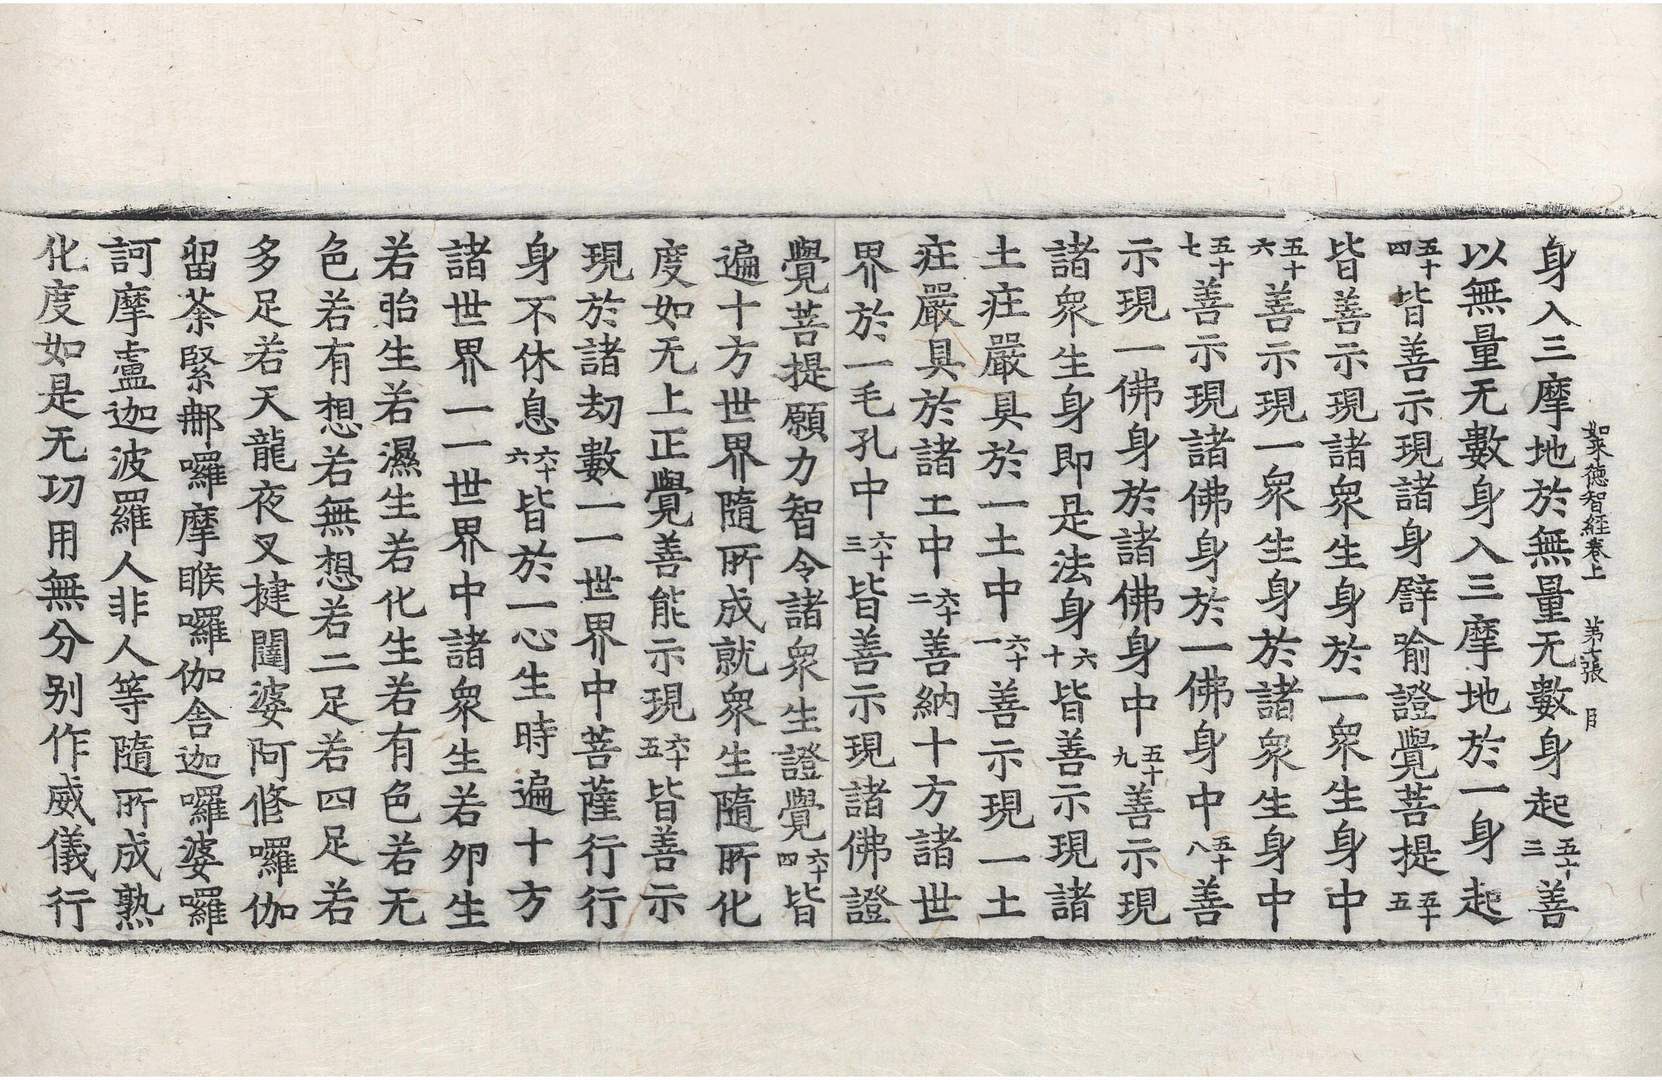 如来德智經卷上　第七張　目
身入三摩地於無量无數身起五十三善
以無量无數身入三摩地於一身起
五十四皆善示現諸身譬喻證覺菩提五十五
皆善示現諸衆生身於一衆生身中
五十六善示現一衆生身於諸衆生身中
五十七善示現諸佛身於一佛身中五十八善
示現一佛身於諸佛身中五十九善示現
諸衆生身即是法身六十皆善示現諸
土庄嚴具於一土中六十一善示現一土
庄嚴具於諸土中六十二善納十方諸世
界於一毛孔中六十三皆善示現諸佛證
覺菩提願力智令諸衆生證覺六十四皆
遍十方世界隨所成就衆生隨所化
度如无上正覺善能示現六十五皆善示
現於諸劫數一一世界中菩薩行行
身不休息六十六皆於一心生時遍十方
諸世界一一世界中諸衆生若卵生
若胎生若濕生若化生若有色若无
色若有想若無想若二足若四足若
多足若天龍夜叉揵闥婆阿修囉伽
留荼緊那囉摩睺囉伽舍迦囉婆囉
訶摩盧迦波羅人非人等隨所成熟
化度如是无功用無分别作威儀行